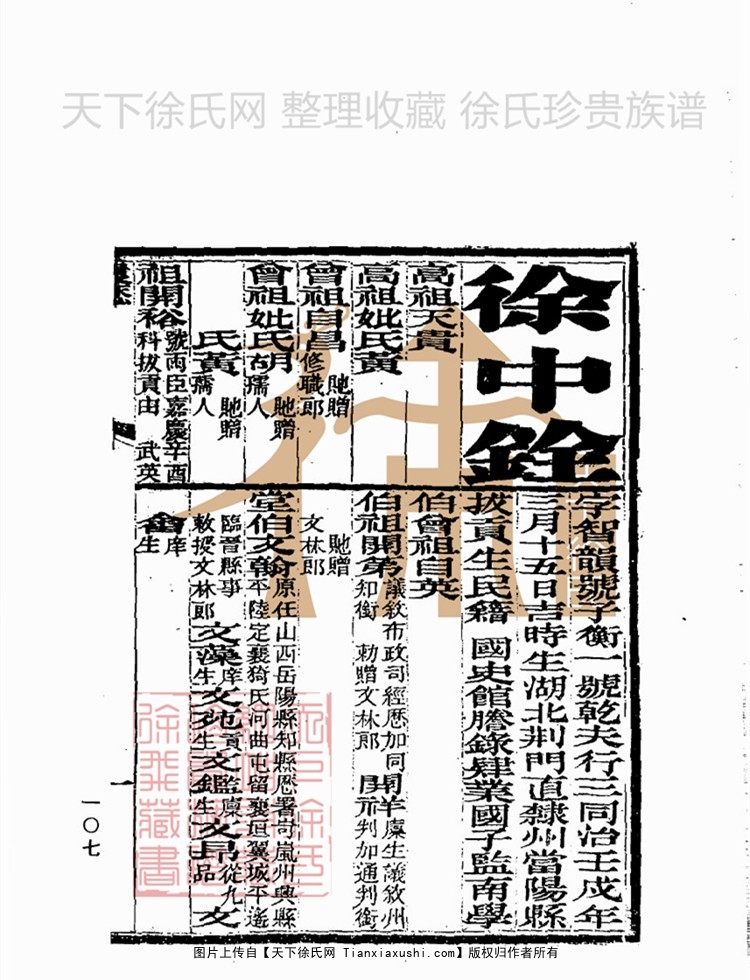 天下徐氏网 整理收藏 徐氏珍贵族谱
徐中銓
字智韻號子衡一號乾夫行三同治壬戌年
三月十五日吉時生湖北荆門直隸州當陽縣
拔貢生民籍 國史館謄錄肄業國子監南學
高祖天貴
高祖妣氏黃
曾祖自昌 貤贈修職郎
曾祖妣氏胡 貤贈孺人
氏黃 貤贈孺人
祖開裕 號雨臣嘉慶辛酉科拔貢由 武英
伯曾祖自英
伯祖開第 議敘布政司經歷加同知銜 勅贈文林郎 開 廩生議敘州判加通判銜
貤贈文林郎
堂伯文翰 原任山西岳陽縣知縣歷署岢嵐州興縣平陸定襄猗氏河曲屯留襄垣翼城平遙
臨晉縣事敕授文林郎 文藻 庠生 文苑 貢生 文鑑 廩生 文昻 從九品 文
庠生
一〇七
徐
徐氏藏書
图片上传自【天下徐氏网 Tianxiaxushi.com】版权归作者所有